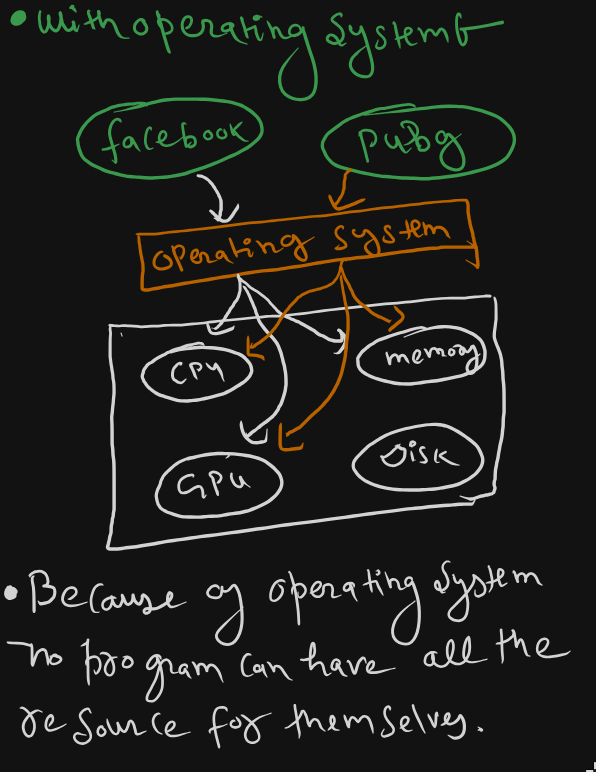 • With operating System
facebook
Pubg
operating system
CPU
memory
GPU
Disk
• Because of operating System
no program can have all the
resource for themselves.